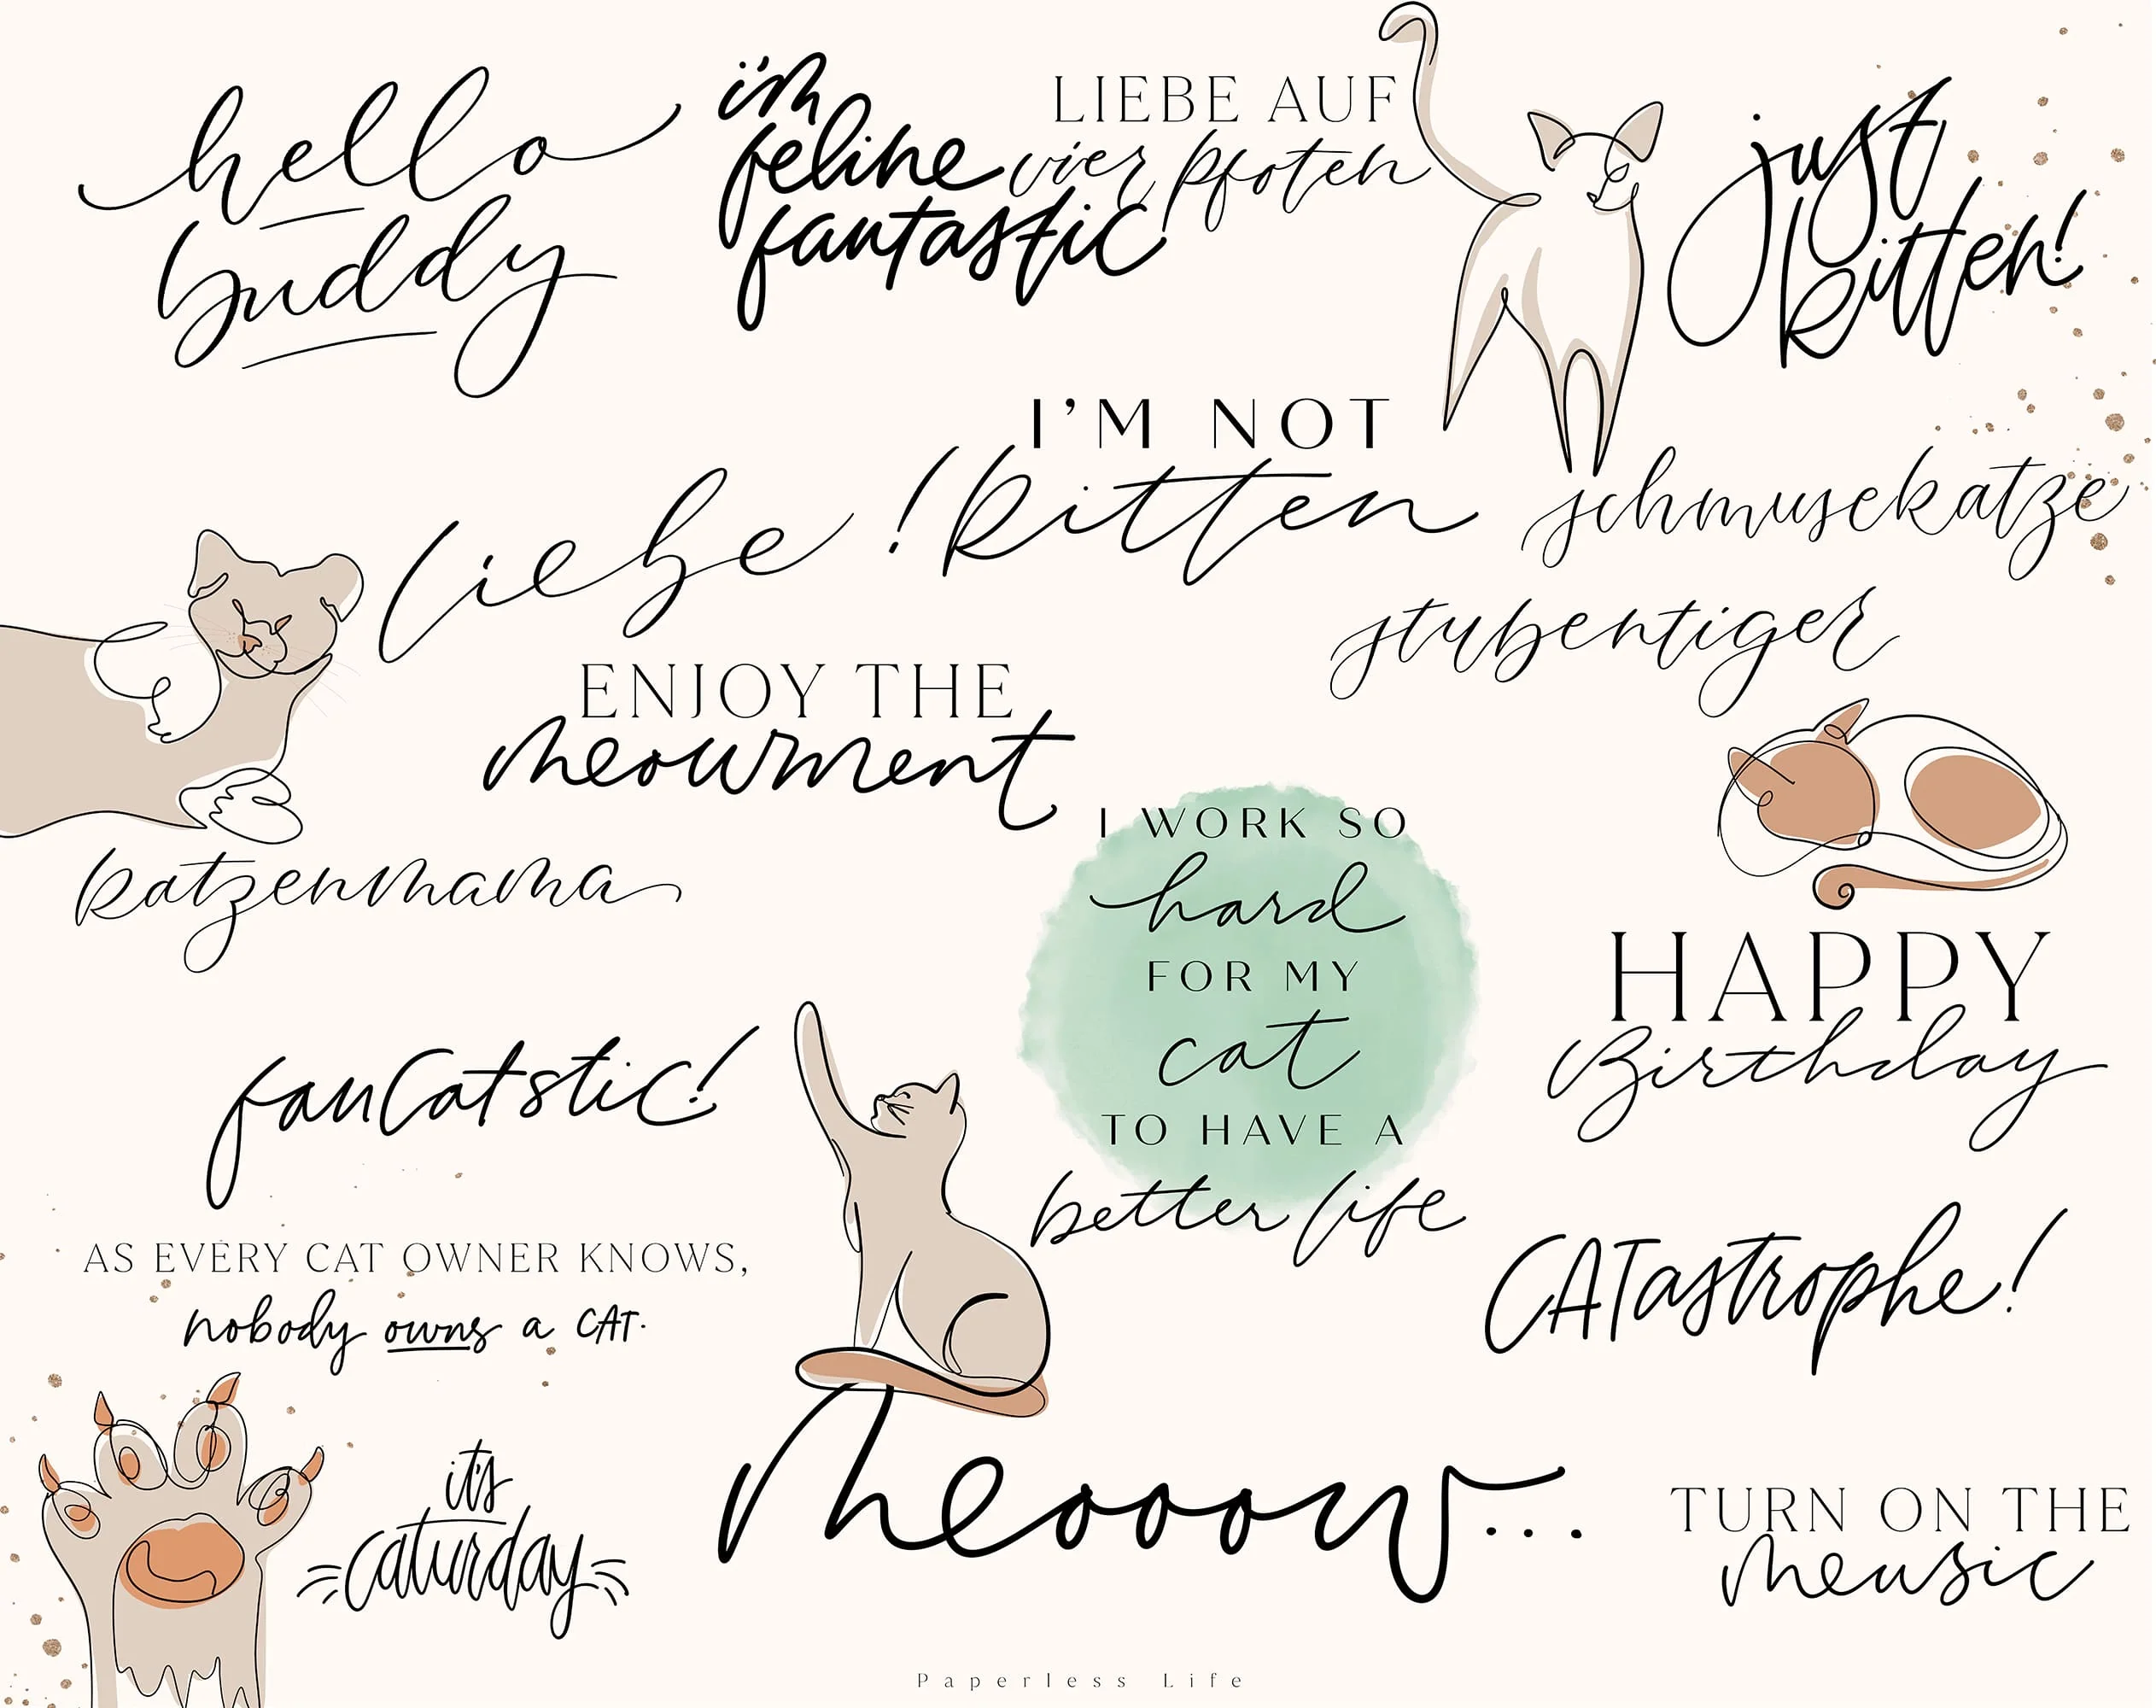 hello
buddy
i'm
feline
fantastic
LIEBE AUF
vier Pfoten
just
kitten!
I'M NOT
kitten!
liebe
schmusekatze
stubentiger
ENJOY THE
meowment
katzenmama
I WORK SO
hard
FOR MY
cat
TO HAVE A
better life
HAPPY
Birthday
fanCatstic!
CATastrophe!
AS EVERY CAT OWNER KNOWS,
nobody owns a CAT.
it's
caturday
Meooow...
TURN ON THE
meusic
Paperless Life